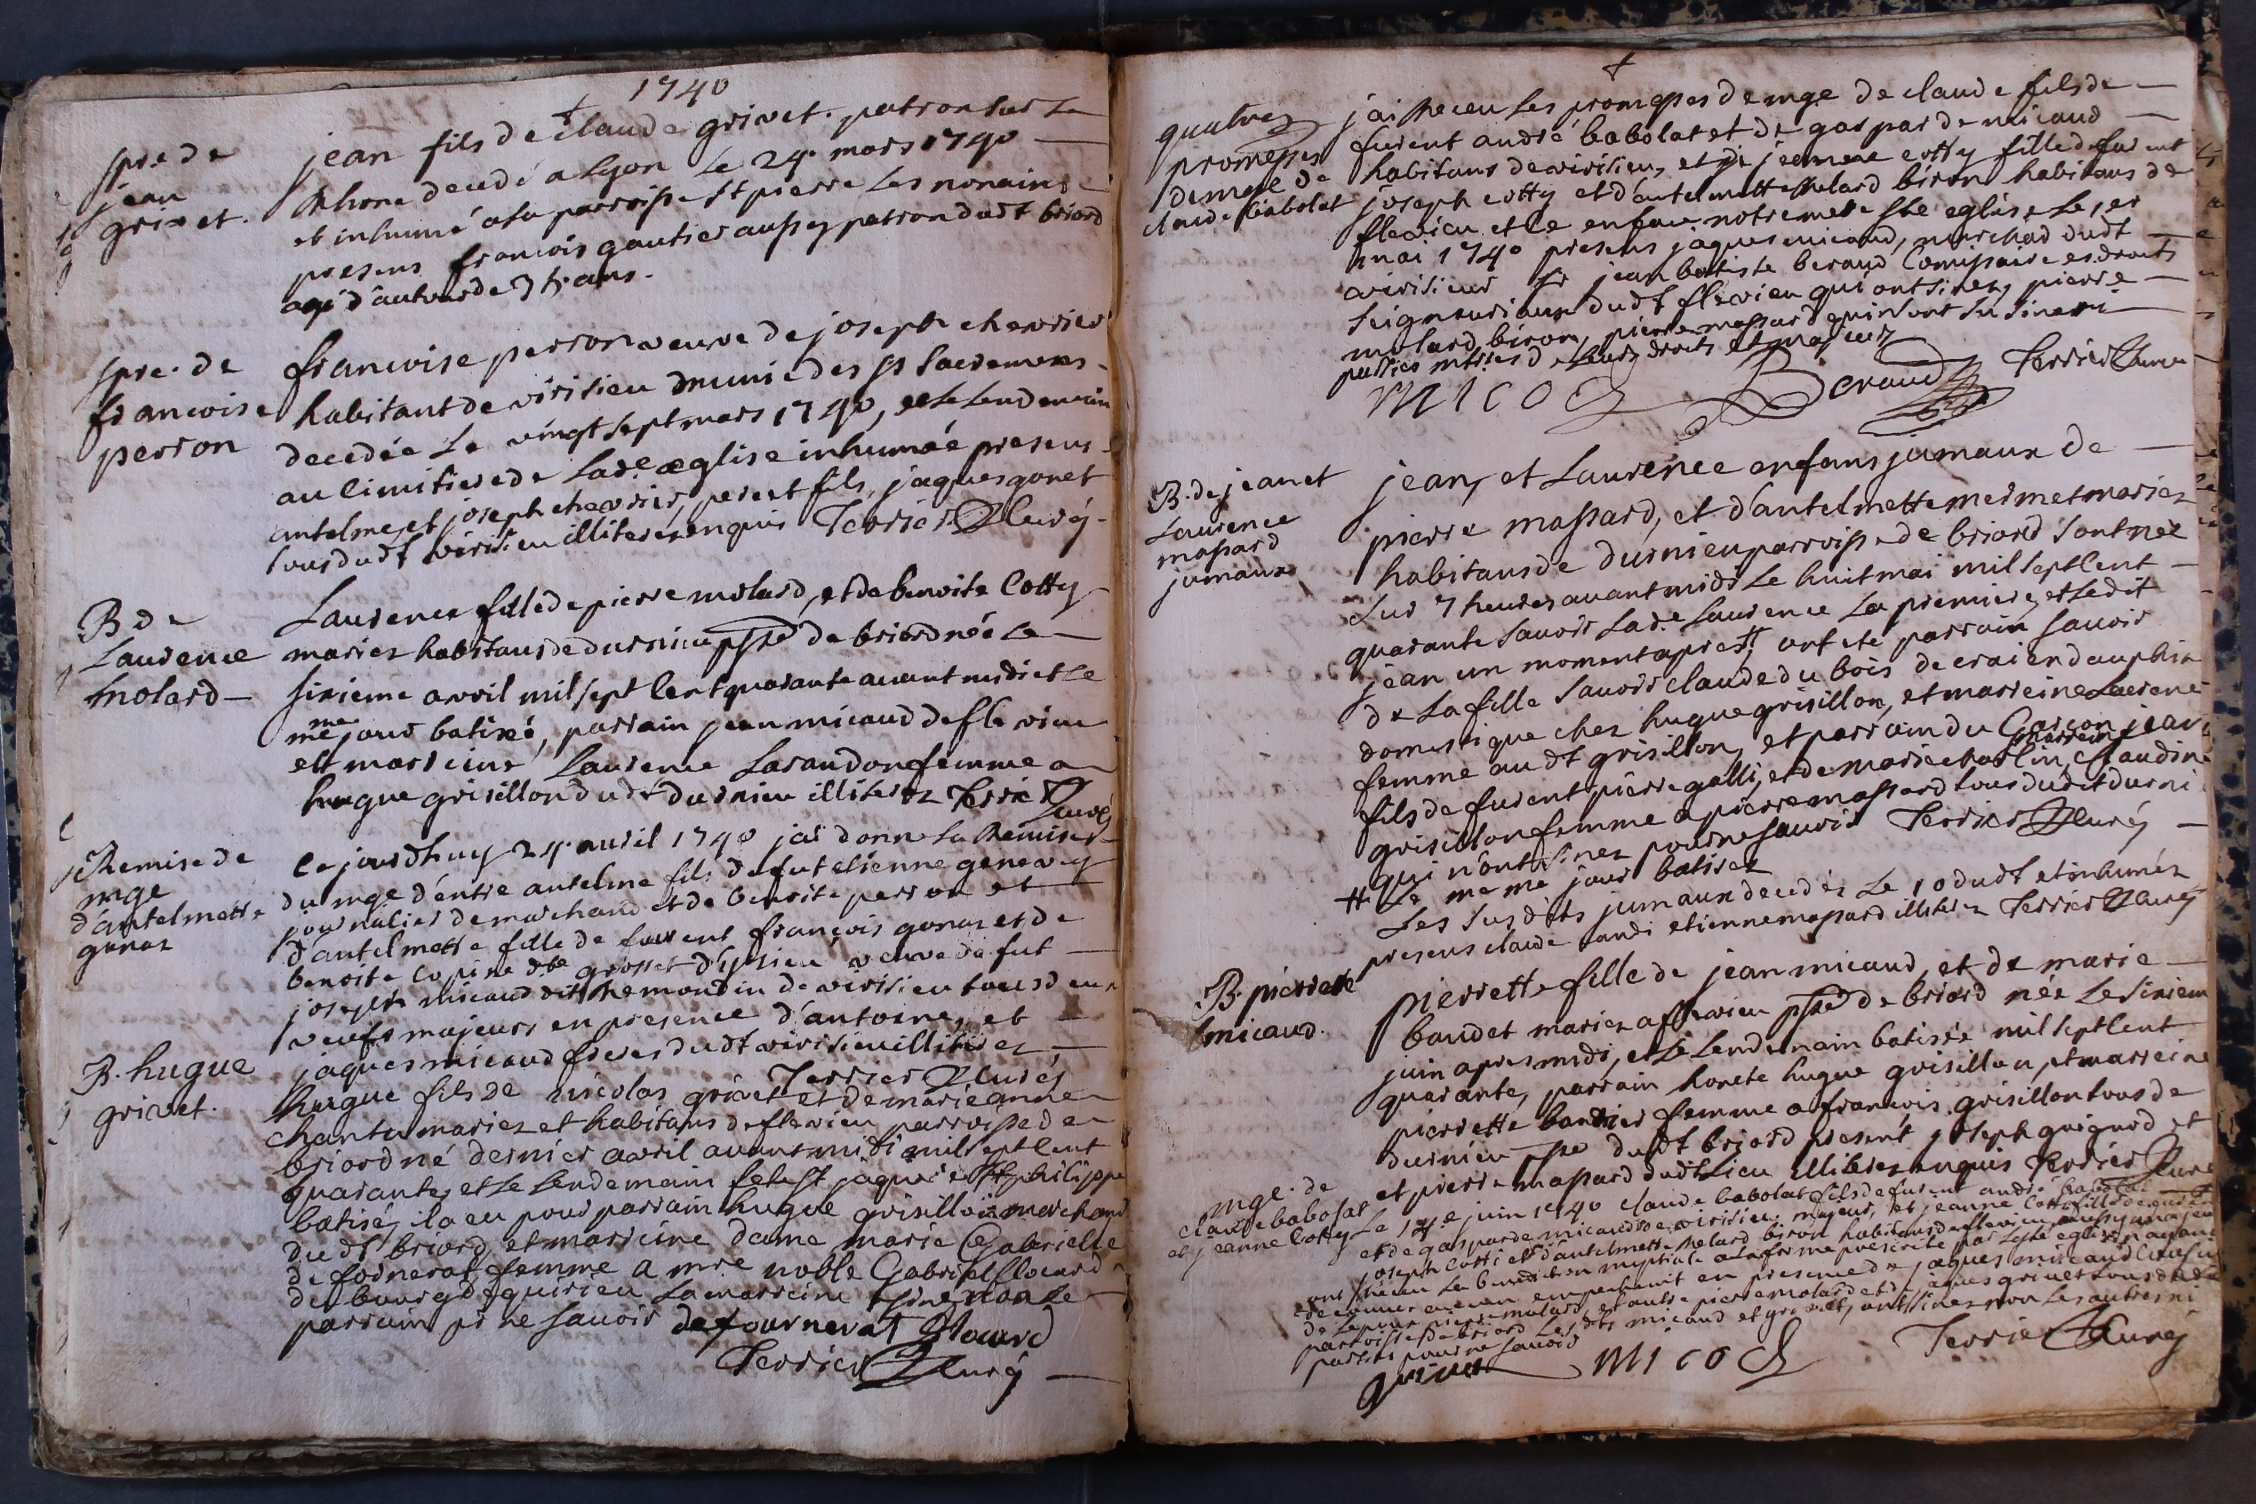 1740
spre de
jean
grivet.
jean fils de claude grivet. patron sur le
Rhone decedé a lyon le 24. mars 1740
et inhumé a la parroisse st pierre les nonains
presens francois gautier aussy patron dudt briord
agé d'autour de ans.
spre. de
francoise
perron
francoise perron veuve de joseph chevrier
habitant de virisieu munie des sts sacremens
decedée le vingt sept mars 1740, et le lendemain
au cimitiere de lade eglise inhumée presens
antelme, et joseph chevrier, pere et fils, jaques gonet
tous dudt virisieu illiteres enquis Terrier Curé
B. de
Laurence
molard
Laurence fille de pierre molard, et de benoite Cotty
mariez habitans de durnieu psse de briord née le
sixieme avril mil sept cent quarante avant midi et le
me jour batizé, parrain jean micaud de flevieu
et marreine Laurence Larandon femme a
hugue grisillon dudt durnieu illiteres Terrier
Curé
Remise de
mge
d'antelmette
gonaz
ce jourdhuy 24. avril 1740 jai donné la Remise
du mge d'entre antelme fils de fut etienne genevey
journalier de marchand et de benoite perron et
d'antelmette fille de furent françois gonaz et de
benoite cupine dte grosset d'ysieu veuve de fut
joseph micaud dit Remondin de virisieu tous deux
veufs majeurs en presence d'antoine, et
jaques micaud freres dudt virisieu illiteres
Terrier Curé
B. hugue
grivet.
hugue fils de nicolas grivet et de marie anne
chantu mariez et habitans de flevieu parroisse de
briord né dernier avril avant midi mil sept cent
quarante, et le lendemain fete st jaque et st philippe
batisé, il a eu pour parrain hugue grisillon marchand
dudt briord, et marreine dame marie Gabrielle
de fornerat femme a mre noble Gabriel flocard
du bourg de quirieu la marreine a siné non le
parrain pr ne savoir defournerat flocard
Terrier Curé
quatres
promesses
de mge de
claude babolat
j'ai Receu les promesses de mge de claude fils de
furent andré babolat et de gasparde micaud
habitans de virisieu, et de jeanne cotty fille de furent
joseph cotty et d'antelmette molard biron habitans de
flevieu et ce en face notre mere ste eglise le 1er
mai 1740 presens jaques micaud, marchad dudt
virisieu sr jean batiste beraud Comissaire es droits
seigneuriaux dudt flevieu qui ont sinez, pierre
molard biron, pierre massard qui n'ont su siner ni
parties mtres de leurs droits et majeurs
MICOD Beraud Terrier Curé
B. de jean et
Laurence
massard
jumaux
jean, et Laurence enfans jumaux de
pierre massard, et d'antelmette mermet mariez
habitans de durnieu parroisse de briord sont nez
sur 7 heures avant midi le huit mai mil sept cent
quarante savoir lade Laurence la premiere, et ledit
jean un moment apres # ont ete parrain savoir
de la fille savoir claude du bois de crai en dauphin
domestique chez hugue grisillon, et marreine Laurence
femme au dt grisillon, et parrain du Garçon jean
fils de furent pierre galli, et de marie charlin, marreine Claudine
grisillon femme a pierre massard tous dudit durni
qui n'ont sinez pour ne savoir Terrier Curé
# le meme jour batisez
Les susdits jumaux decedez le 10 dudt et inhumez
presens claude etienne massard illiterez Terrier Curé
B. pierrette
micaud.
pierrette fille de jean micaud, et de marie
baudet mariez a flevieu psse de briord née le sixieme
juin apres midi, et le lendemain batisée mil sept cent
quarante, parrain honete hugue grisillon, et marreine
pierrette femme a francois grisillon tous de
durnieu psse dudt briord present joseph guignard et
et pierre massard dudt Lieu illiteres enquis Terrier Curé
mge. de
claude babolat
et jeanne Cotty
Le 14e juin 1740 claude babolat fils de furent andré babolat
et de gasparde micaud de virisieu majeur, et jeanne Cotti fille de furent
joseph Cotti et d'antelmette molard biron habitans de flevieu, aussy majeure
ont Receu la benediction nuptiale a la forme prescrite par lade eglise n'ayant
decouver aucun empechemt en presence de jaques micaud cousin
de lepoux pierre molard, et autre pierre molard et de jaques grivet tous dudt
parroisse de briord lesdts micaud et grivet, ont sinez non les autres ni
parties pour ne savoir
grivet MICOD Terrier Curé